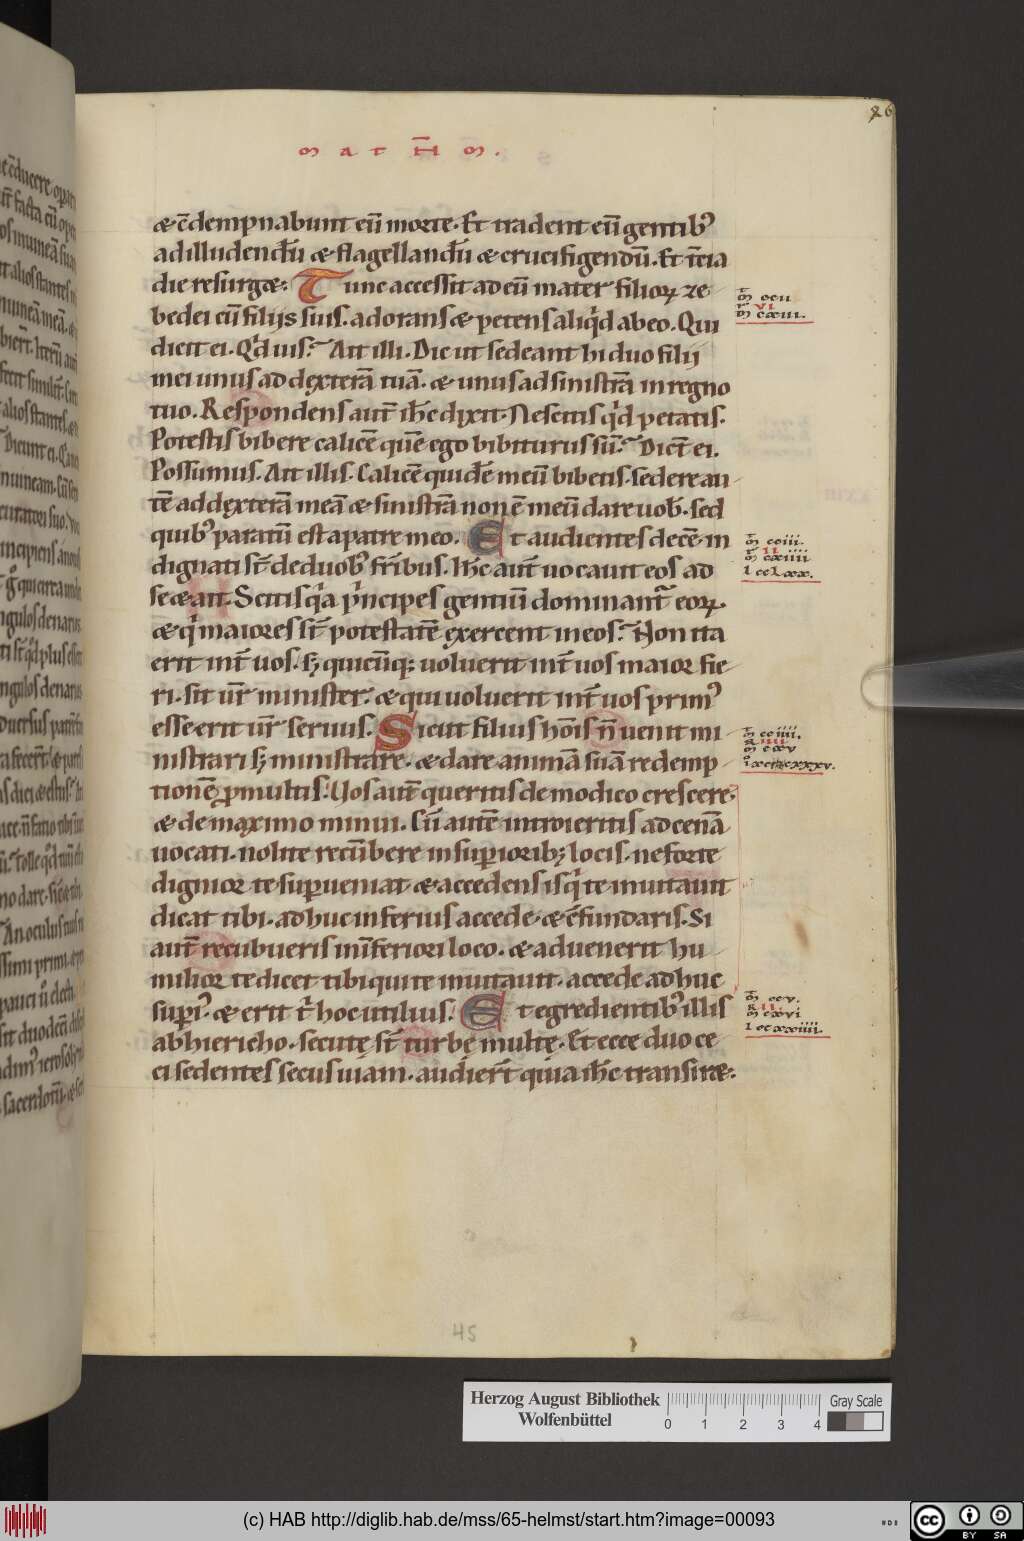 26
MATHM.
& c̄dempnabunt eū morte. Et tradent eū gentibꝰ
ad illudendū & flagellandū & crucifigendū. Et t̄cia
die resurg&. Tunc accessit ad eū mater filioꝝ ze
bedei cū filijs suis. adorans & petens aliq̇d ab eo. Qui
dicit ei. Q̇d uis? Ait illi. Dic ut sedeant hi duo filij
mei unus ad dęxterā tuā. & unus ad sinistrā in regno
tuo. Respondens aut̄ ih̄c dixit. Nescitis q̇d petatis.
Potestis bibere calicē quē ego bibiturus sū? Dic̄t ei.
Possumus. Ait illis. Calicē quidē meū bibetis. sedere au-
tē ad dęxterā meā & sinistrā non ē meū dare uob̄. sed
quibꝰ paratū est a patre meo. Et audientes decē. in
dignati st̄ de duobꝰ fr̄ibus. Ih̄c aut̄ uocauit eos ad
se & ait. Scitis q̇a ṗncipes gentiū dominant̄ eoꝝ.
& q̇ maiores st̄ potestatē ęxercent in eos? Non ita
erit int̄ uos. sꝫ quicūqꝫ uoluerit int̄ uos maior fie-
ri. sit ur̄ minister. & qui uoluerit int̄ uos primꝰ
esse erit ur̄ seruus. Sicut filius hōis n̄ uenit mi
nistrari sꝫ ministrare. & dare animā suā redemp
tionē ꝓ multis. Uos aut̄ queritis de modico crescere.
& de maximo minui. Cū autē introieritis ad cenā
uocati. nolite recūbere in suꝑioribꝫ locis. ne forte
dignior te suꝑueniat & accedens is q̇ te inuitauit
dicat tibi. adhuc inferius accede. & c̄fundaris. Si
aut̄ recubueris in īferiori loco. & aduenerit hu
milior te dicet tibi qui te inuitauit. accede adhuc
suꝑiꝰ. & erit ṫ hoc utilius. Et egredientibꝰ illis
ab hiericho. secutę st̄ turbę multę. Et ecce duo ce
ci sedentes secus uiam. audier̄t quia ih̄c transir&.
m̄ ccii
VI
m̄ cxiii.
m̄ cciii.
II
m̄ cxiiii
l cclxxx.
m̄ cciiii.
R IIII
m̄ cxv
m̄ ccv.
R II.
m̄ cxvi
l ccxxiiii.
45
Herzog August Bibliothek
Wolfenbüttel
0 1 2 3 4
Gray Scale
(c) HAB http://diglib.hab.de/mss/65-helmst/start.htm?image=00093
HAB
cc BY SA